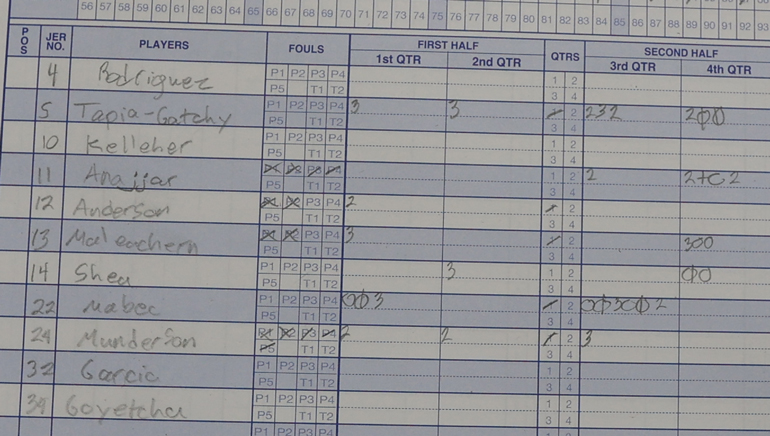 56 57 58 59 60 61 62 63 64 65 66 67 68 69 70 71 72 73 74 75 76 77 78 79 80 81 82 83 84 85 86 87 88 89 90 91 92 93
POS JER NO. PLAYERS FOULS FIRST HALF 1st QTR 2nd QTR QTRS SECOND HALF 3rd QTR 4th QTR
4 Rodriguez P1 P2 P3 P4 1 2
P5 T1 T2 3 4
5 Tapia-Gatchy P1 P2 P3 P4 3 3 2 232
P5 T1 T2 3 4
10 Kelleher P1 P2 P3 P4 1 2
P5 T1 T2 3 4
11 Anajjar P1 P2 P3 P4 1 2 2
P5 T1 T2 3 4
12 Anderson P1 P2 P3 P4 2 2
P5 T1 T2 3 4
13 P1 P2 P3 P4 3 2 300
P5 T1 T2 3 4
14 Shea P1 P2 P3 P4 3 1 2
P5 T1 T2 3 4
22 Mabec P1 P2 P3 P4 2
P5 T1 T2 3 4
24 Munderson P1 P2 P3 P4 2 2 2 3
P5 T1 T2 3 4
32 Garcia P1 P2 P3 P4 1 2
P5 T1 T2 3 4
34 Goyetcha P1 P2 P3 P4 1 2
P5 T1 T2 3 4
P1 P2 P3 P4